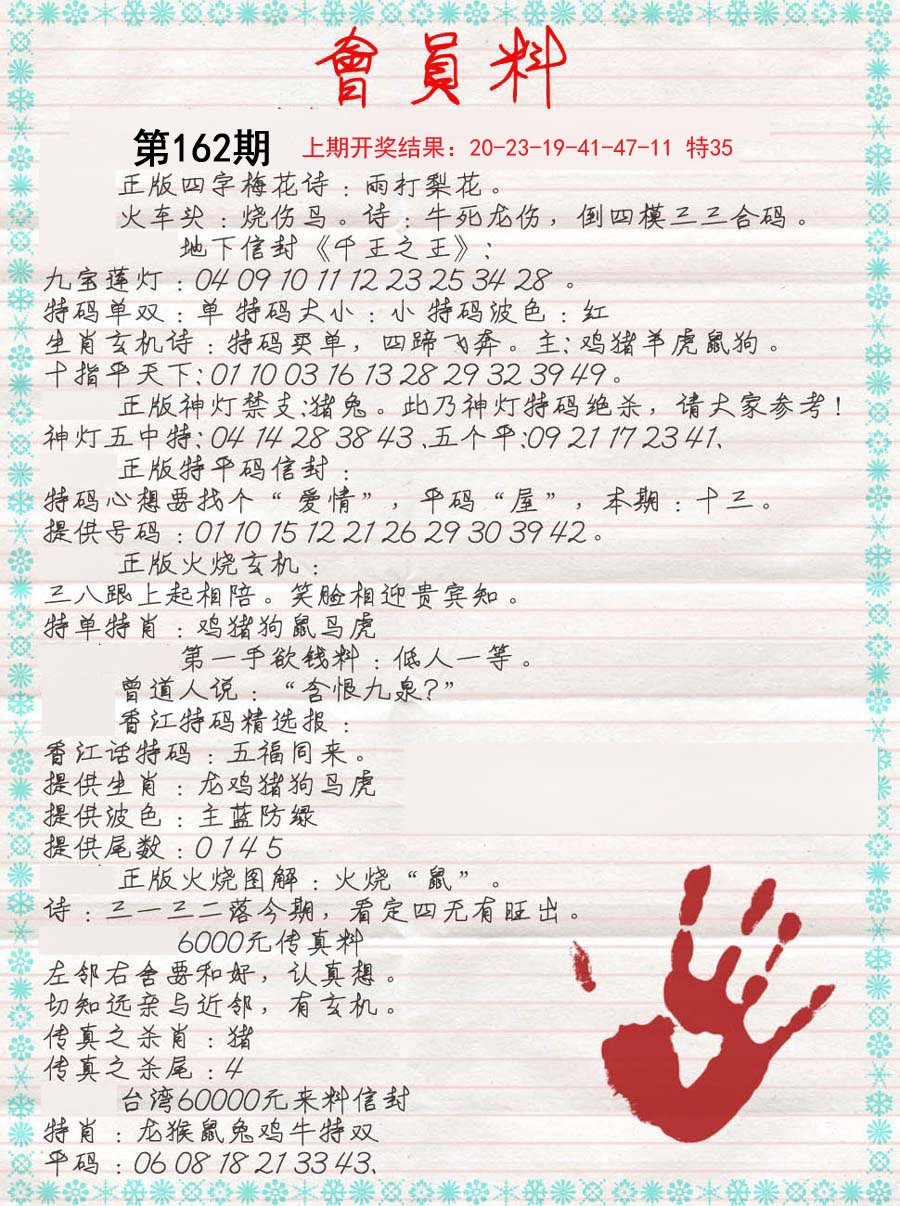 會員料
第162期 上期开奖结果：20-23-19-41-47-11 特35
正版四字梅花诗：雨打梨花。
火车头：烧伤鸟。诗：牛死龙伤，倒四模三三合码。
地下信封《千王之王》：
九宝莲灯：04 09 10 11 12 23 25 34 28 。
特码单双：单 特码大小：小 特码波色：红
生肖玄机诗：特码买单，四蹄飞奔。主：鸡猪羊虎鼠狗。
十指平天下：01 10 03 16 13 28 29 32 39 49。
正版神灯禁支：猪兔。此乃神灯特码绝杀，请大家参考！
神灯五中特：04 14 28 38 43、五个平：09 21 17 23 41、
正版特平码信封：
特码心想要找个“爱情”，平码“屋”，本期：十三。
提供号码：01 10 15 12 21 26 29 30 39 42。
正版火烧玄机：
三八跟上起相陪。笑脸相迎贵宾知。
特单特肖：鸡猪狗鼠马虎
第一手欲钱料：低人一等。
曾道人说：“含恨九泉？”
香江特码精选报：
香江话特码：五福同来。
提供生肖：龙鸡猪狗马虎
提供波色：主蓝防绿
提供尾数：0 1 4 5
正版火烧图解：火烧“鼠”。
诗：三一三二落今期，看定四无有旺出。
6000元传真料
左邻右舍要和好，认真想。
切知远亲与近邻，有玄机。
传真之杀肖：猪
传真之杀尾：4
台湾60000元来料信封
特肖：龙猴鼠兔鸡牛特双
平码：06 08 18 21 33 43、